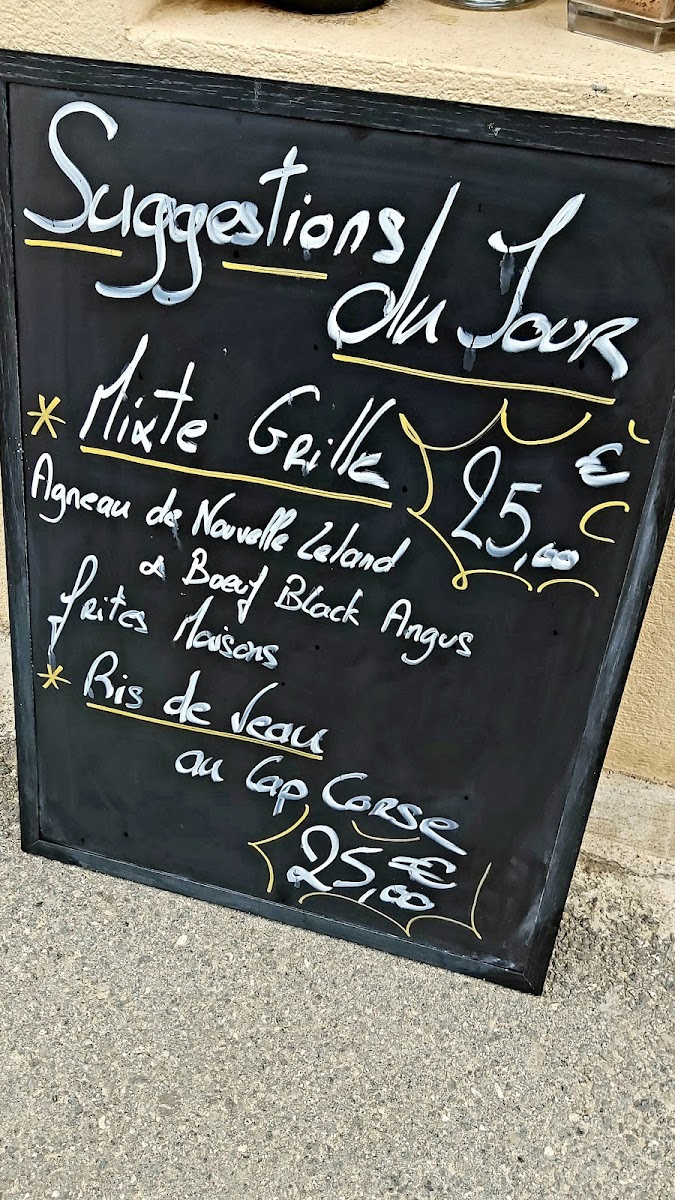 Suggestions
du Jour
* Mixte Grille
25,00 €
Agneau de Nouvelle Zeland
& Boeuf Black Angus
frites Maisons
* Ris de Veau
au Cap Corse
25,00 €